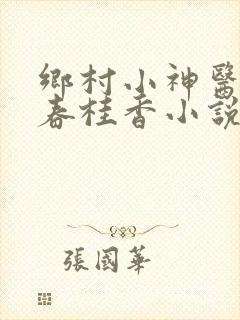 鄉村小神醫
春桂香小說
張國華